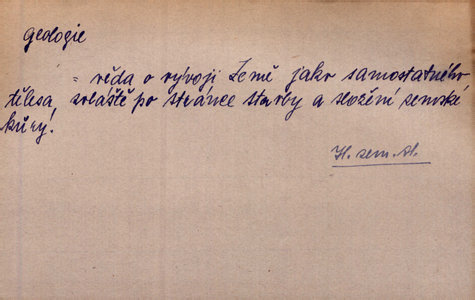 geologie
= věda o vývoji Země jako samostatného
tělesa zvláště po stránce stavby a složení zemské
kůry!
H. zem. st.